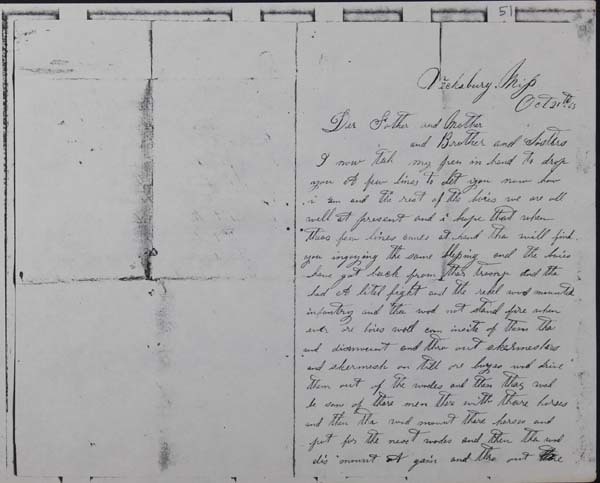 51
Vicksburg Miss
Oct
Der Father and Mother
and Brother and Sisters
I now tak my pen in hand to drop
you A few lines to let you now how
i am and the rest of the boies we are all
well at present and i hope that when
theas few lines comes at hand tha will find
you ingoying the same blesing and the boies
have got back from ther and tha
had A litel fight and the rebel wos mounted
infantry and tha wod not stand fire when
ever ore boies wold com insite of them tha
wod dismount and thro out skermeshars
and skermesh on till ore boyes wod drive
them out of the wodes and then thay wod
be som of there men ther with there horses
and then tha wod mount there horses and
put for the next wodes and then tha wod
dis mount A gain and thro out there